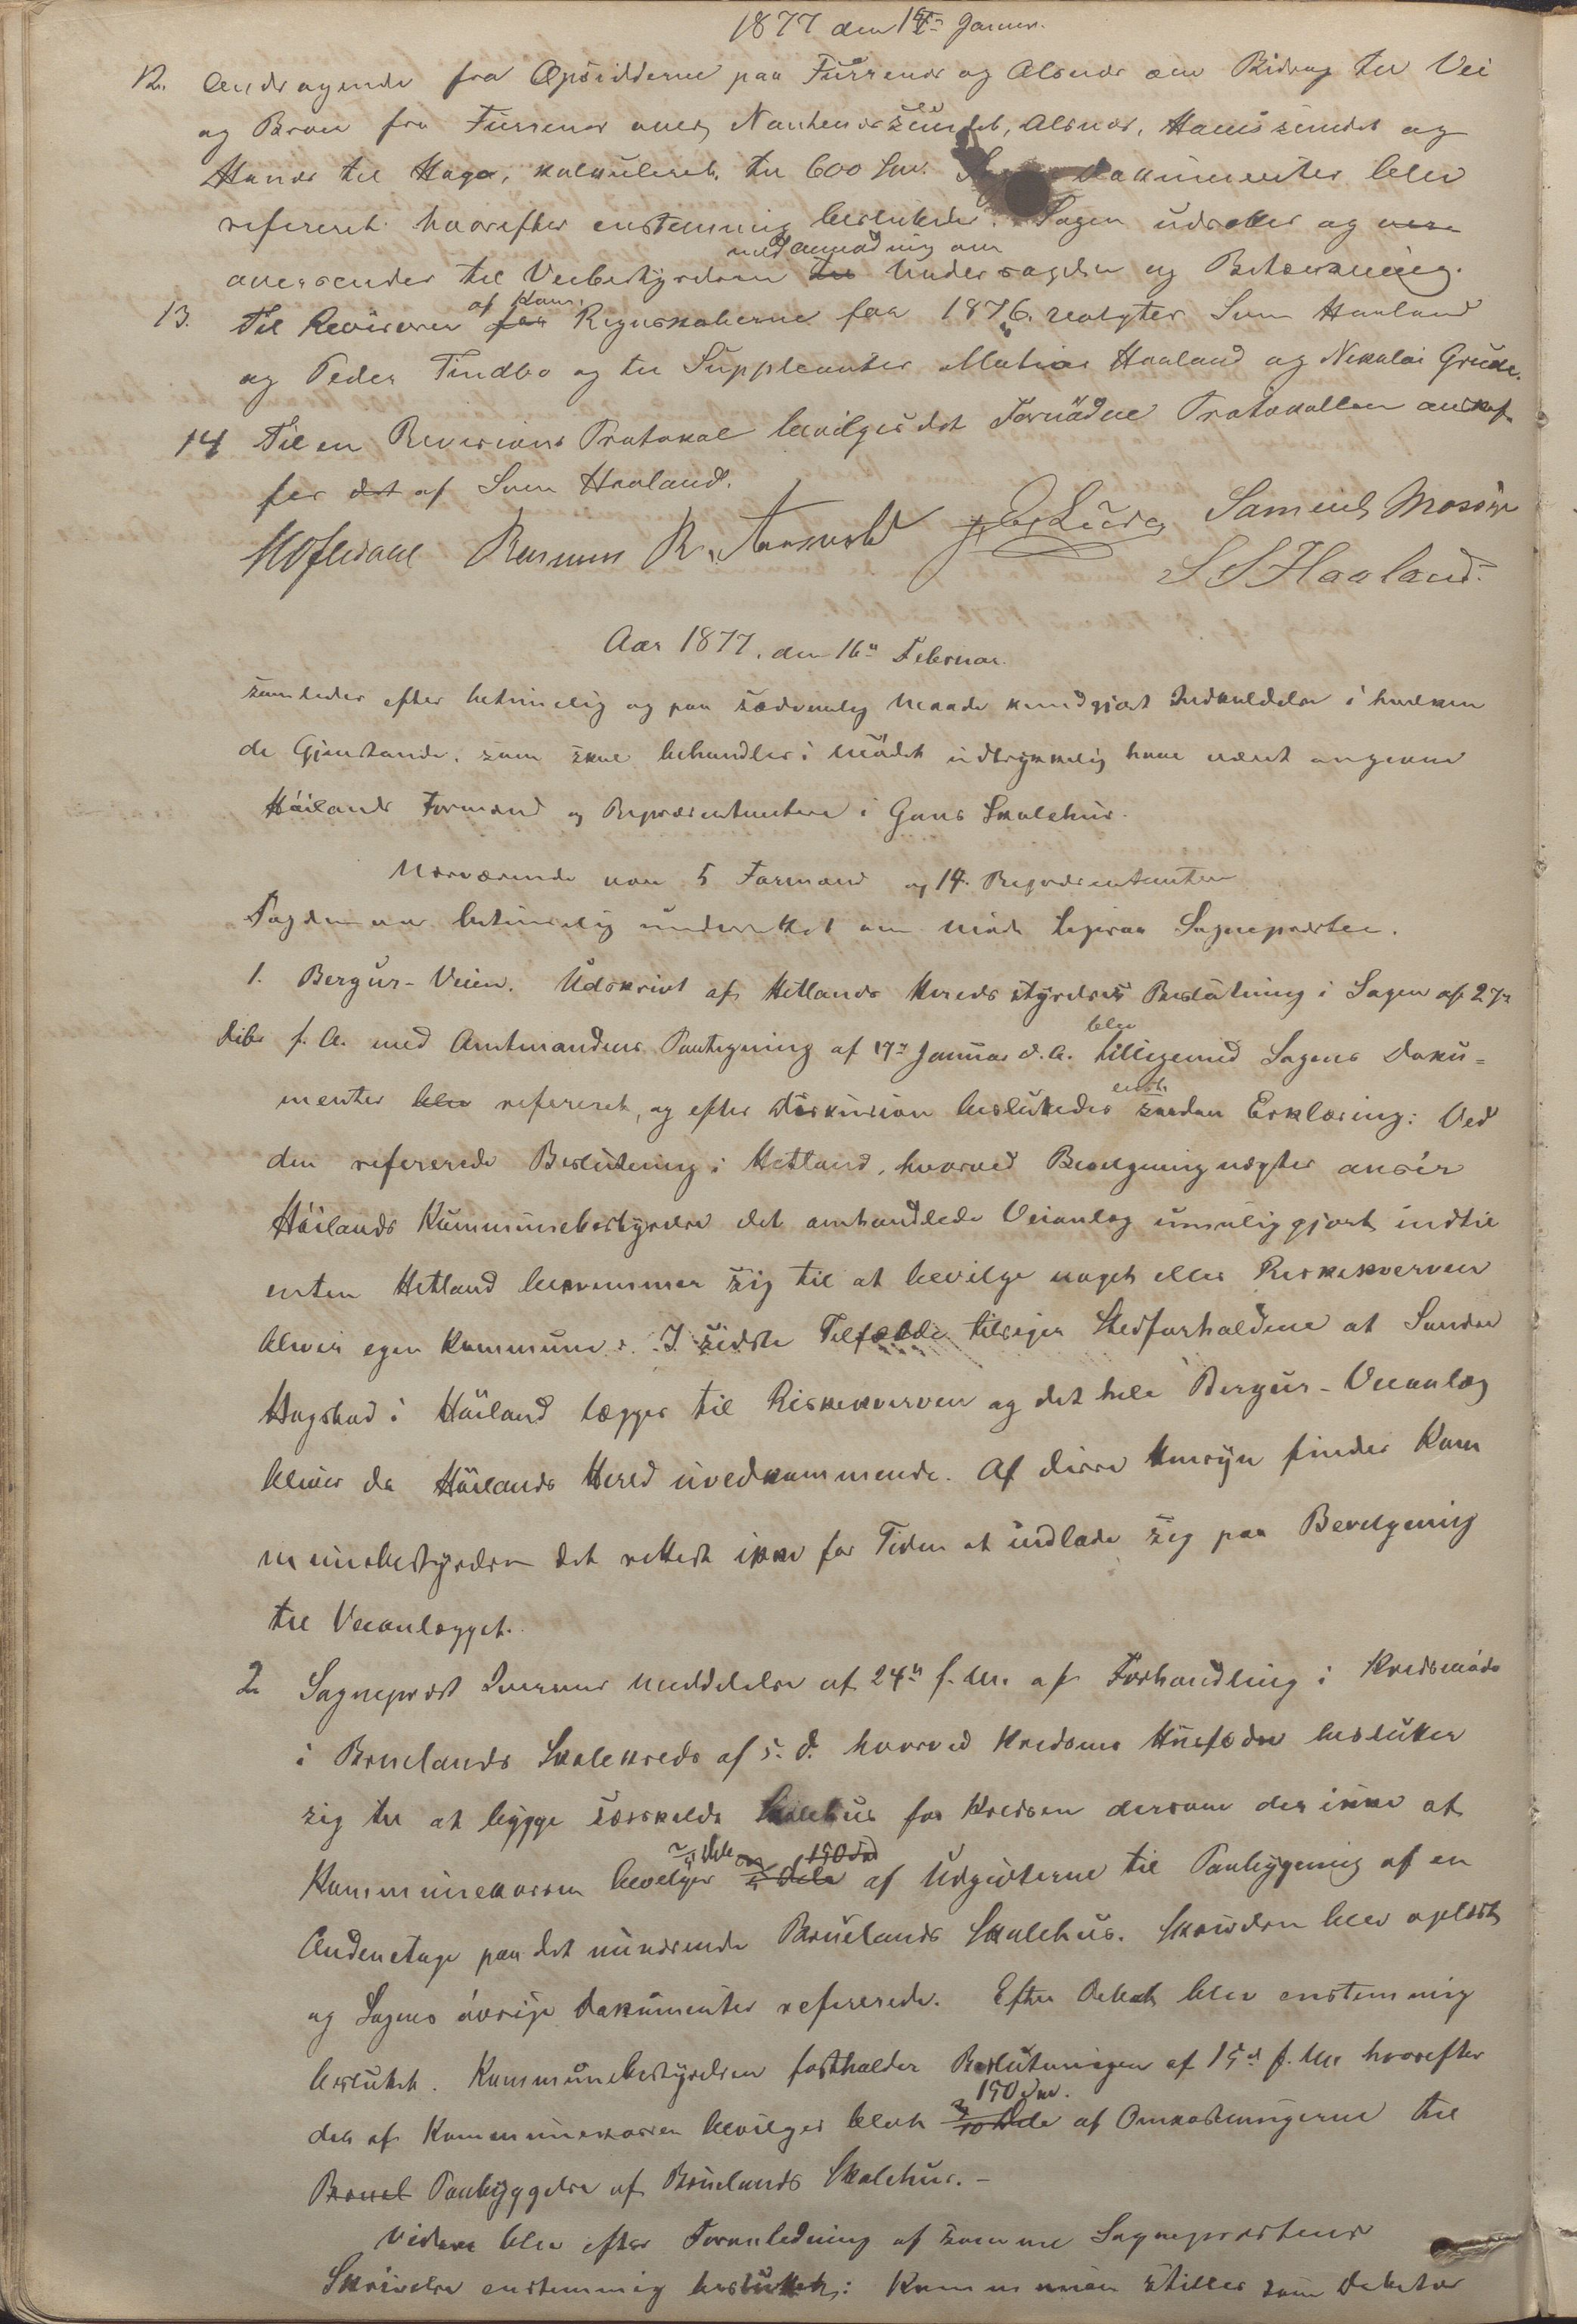 1877 den 15de Januar.
12. Andragende fra Opsidderne paa Furrenes og Alsnes om Bidrag til Vei
og Broer fra Furrenes over Nautenessundet, Alsnes, Hanessundet og
Hanes til Haga, kalkuleret til 600 Spd. Dokumenter blev
refereret hvorefter enstemmig besluttedes: Sagen udsættes og
oversendes til Veibestyrelsen med anmodning om Undersøgelse og Betænkning.
13. Til Revisorer af Kom. Regnskaberne for 1876 valgtes Sven Haaland
og Peder Tindbø og til Suppleanter Matias Haaland og Nikolai Grude.
14 Til en Revisions Protokol bevilges det Fornødne Protokollen anskaf-
fes af Sven Haaland.
Rasmus R. Aarsvold Samuel Mossige
S S Haaland.
Aar 1877. den 16de Februar.
samledes efter betimelig og paa sædvanlig Maade kundgjort Indkaldelse i hvilken
de Gjenstande, som skal behandles i Mødet udtrykkelig have været angivne
Høilands Formænd og Repræsentantere i Gans Skolehus.
Nærværende var 5 Formænd og 14 Repræsentanter
Fogden var betimelig underrettet om Møde ligesaa Sognepresten.
1. Bergus-Veien. Udskrivt af Hetlands Heredsstyrelses Beslutning i Sagen af 27de
Dcbr f. A. med Amtmandens Paategning af 17de Januar d. A. blev tilligemed Sagens Doku-
menter blev refereret, og efter Diskusion besluttedes enst. saadan Erklæring: Ved
den refererede Beslutning i Hetland, hvorved Bevilgning nægtes anser
Høilands Kommunebestyrelse det omhandlede Veianlæg umuliggjort indtil
enten Hetland bekvemmer sig til at bevilge noget eller Riskekverven
bliver egen Kommune. I sidste Tilfælde tilsiger Stedforholdene at Søndre
Hogstad i Høiland lægges til Riskekverven og det hele Bergus-Veianlæg
bliver da Høilands Hered uvedkommende. Af disse Hensyn finder Kom
munebestyrelsen det rettest ikke for Tiden at indlade sig paa Bevilgning
til Veianlægget.
2. Sogneprest Iversens Meddelelse af 24de f. M. af Forhandling i Kredsmøde
i Bruelands Skolekreds af s. d. hvorved Kredsens Husfædre beslutter
sig til at bygge særskildt Skolehus for Kredsen dersom der ikke af
Kommunekassen bevilges af Udgivterne til Paabygning af en
Andenetage paa det nuværende Bruelands Skolehus. Skrivelsen blev oplæst
og Sagens øvrige Dokumenter refererede. Efter Debat blev enstemmig
besluttet. Kommunebestyrelsen fastholder Beslutningen af 15de f. M. hvorefter
der af Kommunekassen bevilges blot 3/10 Dele 150 Spd. af Omkostningerne til
Bruel Paabyggelse af Bruelands Skolehus. –
Videre blev efter Foranledning af samme Sogneprestens
Skrivelse enstemmig besluttet: Kommunen stiller som Debitor